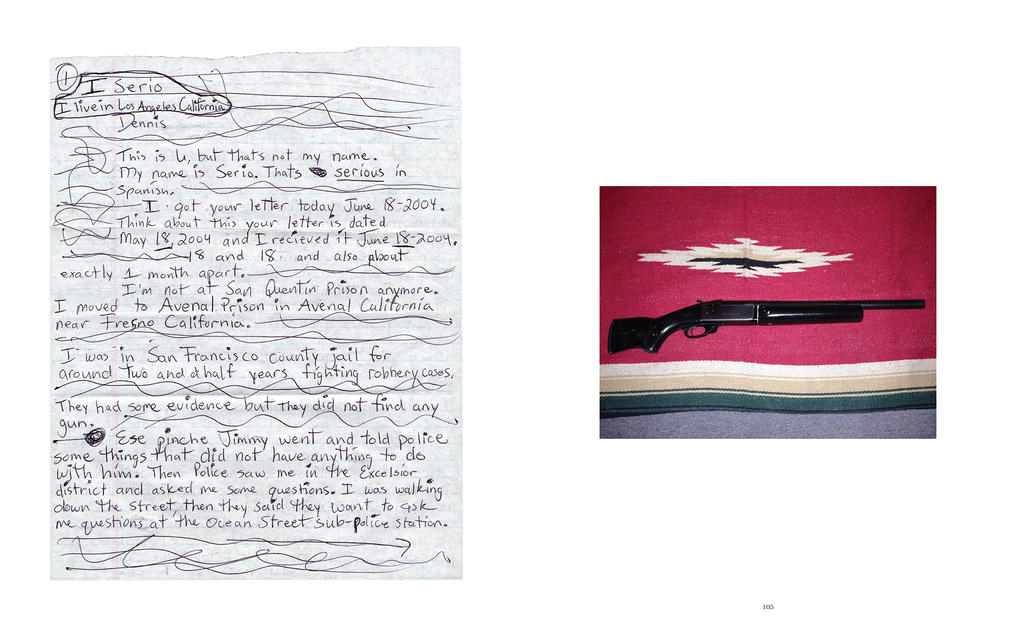 1
I Serio
I live in Los Angeles California
Dennis
This is U, but thats not my name.
My name is Serio. Thats serious in
Spanish.
I got your letter today June 18-2004.
Think about this your letter is dated
May 18, 2004 and I recieved it June 18-2004.
18 and 18. and also about
exactly 1 month apart.
I'm not at San Quentin Prison anymore.
I moved to Avenal Prison in Avenal California
near Fresno California.
I was in San Francisco county jail for
around two and a half years fighting robbery cases.
They had some evidence but they did not find any
gun.
Ese pinche Jimmy went and told police
some things that did not have anything to do
with him. Then Police saw me in the Excelsior
district and asked me some questions. I was walking
down the street, then they said they want to ask
me questions at the Ocean Street sub-police station.
105